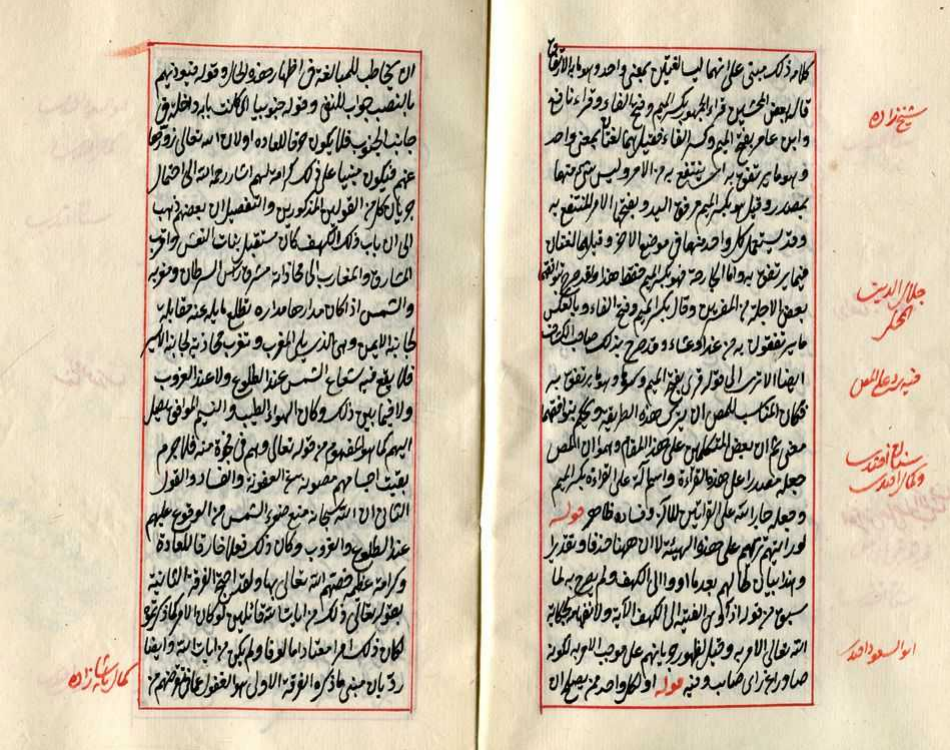 كلامه ذلك مبنى على انهما ليسا لغتين بمعنى واحد وهو ما به الارتفاق
قال بعض المحشين قراء الجمهور بكسر الميم وفتح الفاء وقراء نافع
وابن عامر بفتح الميم وكسر الفاء فقيل هما لغتان بمعنى واحد
وهو ما يرتفق به اى ينتفع به من الامر وليس شئ منها
بمصدر وقيل هو بكسر الميم مرفق اليد وبفتحها الامر المنتفع به
وقد يستعمل كل واحد منهما فى موضع الاخر وقيل هما لغتان
فيما يرتفق به واما الجارحة فهو بكسر الميم فقط هذا وقد صرح بتوافقهما
بعض الاجلة من المفسرين وقال بكسر الميم وفتح الفاء وبالعكس
ما يرتفقون به من غداء وعشاء وقد صرح بذلك صاحب الكشاف
ايضا الا ترى الى قوله قرى بفتح الميم وكسرها وهو ما يرتفق به
فكان المناسب للمص ان يترك هذه الطريقة ويحكم بتوافقهما
معنى ثم ان بعض المتكلمين على هذا المقام وهموا ان المص
جعله مصدرا على هذه القراءة واسم آلة على القراءة بكسر الميم
وجعله جار الله على القراءتين للآلة وفساده ظاهر قوله
لو رايتهم ترهم على هذه الهيئة لا ان ههنا حذفا وتقديرا
وهذا بيان لحالهم بعد ما اووا الى الكهف ولم يصرح به لما
سبق من قوله اذ اوى الفتية الى الكهف الآية ولانفهامه بحكاية
الله تعالى الامر به وقيل لظهور جريانهم على موجب الامر به لكونه
صادرا عن راى صائب وفيه قوله او لكل واحد ممن يصلح ان
شيخ زاده
جلال الدين
المحكر
فيه رد على المص
سنان افندى
وكمال افندى
ابو السعود افندى
ان يخاطب للمبالغة فى اظهار هذه الحال وقوله فيؤذيهم
بالنصب جواب للمنفى وقوله جنوبيا اى كانت بابه داخلة فى
جانب الجنوب فلا يكون خرقا للعادة او لان الله تعالى زورها
عنهم فيكون مبنيا على ذلك كرامة لهم اشار رحمه الله الى احتمال
جريان كل من القولين المذكورين والتفصيل ان بعضهم ذهب
الى ان باب ذلك الكهف كان مستقبل بنات النعش واقرب
المشارق والمغارب الى محاذاته مشرق راس السرطان ومغربه
والشمس اذا كان مدارها مداره تطلع مايلة عنه مقابلة
لجانبه الايمن وهى الذى يلى المغرب وتغرب محاذية لجانبه الايسر
فلا يقع فيه شعاع الشمس عند الطلوع ولا عند الغروب
ولا فيما بين ذلك وكان الهواء الطيب والنسيم الموافق يصل
اليهم كما هو المفهوم من قوله تعالى وهم فى فجوة منه فلا جرم
بقيت اجسامهم مصونة من العفونة والفساد والقول
الثانى ان الله سبحانه منع ضوء الشمس من الوقوع عليهم
عند الطلوع والغروب وكان ذلك فعلا خارقا للعادة
وكرامة عظيمة خصهم الله تعالى بها ولقد احتج الفرقة الثانية
بقوله تعالى ذلك من ايات الله قائلين لو كان الامر كما ذكرتم
لكان ذلك امرا معتادا مألوفا ولم يكن من ايات الله وايضا
رد بان مبنى ما ذكره الفرقة الاول هو الغفول عما
كمال پاشا زاده